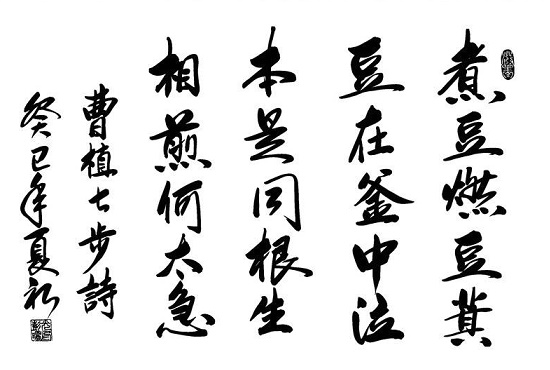 煮豆燃豆萁
豆在釜中泣
本是同根生
相煎何太急
曹植七步詩
癸巳年夏初